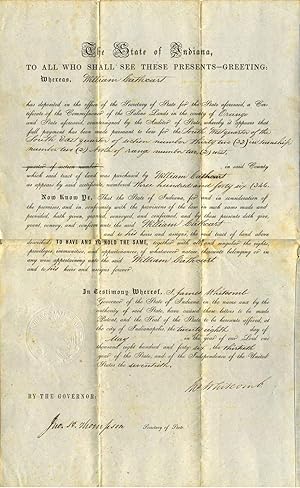 The State of Indiana,
TO ALL WHO SHALL SEE THESE PRESENTS—GREETING:
Whereas, William Cathcart
has deposited in the office of the Secretary of State for the State aforesaid, a Cer-
tificate of the Commissioner of the Saline Lands in the county of Orange
and State aforesaid, countersigned by the Auditor of State, whereby it appears that
full payment has been made pursuant to law for the South West quarter of the
South East quarter of section number Thirty two (32) in township
number two (2) North of range number two (2) West
quarter of section number in said County
which said tract of land was purchased by William Cathcart
as appears by said certificate, numbered three hundred and forty six (346.)
Now Know Ye, That the State of Indiana, for and in consideration of
the premises, and in conformity with the provisions of the law in such cases made and
provided, hath given, granted, conveyed, and confirmed, and by these presents doth give,
grant, convey, and confirm unto the said William Cathcart
and to his heirs and assigns the said tract of land above
described; TO HAVE AND TO HOLD THE SAME, together with all and singular the rights,
privileges, immunities, and appurtenances, of whatsoever nature, thereunto belonging or in
any wise appertaining unto the said William Cathcart
and to his heirs and assigns forever.
In Testimony Whereof, I James Whitcomb
Governor of the State of Indiana, in the name and by the
authority of said State, have caused these letters to be made
Patent, and the Seal of the State to be hereunto affixed, at
the city of Indianapolis, the twenty eighth day of
May in the year of our Lord one
thousand eight hundred and forty six, the thirtieth
year of the State, and of the Independence of the United
States the seventieth.
Jas. Whitcomb
BY THE GOVERNOR:
Jno. H. Thompson Secretary of State.